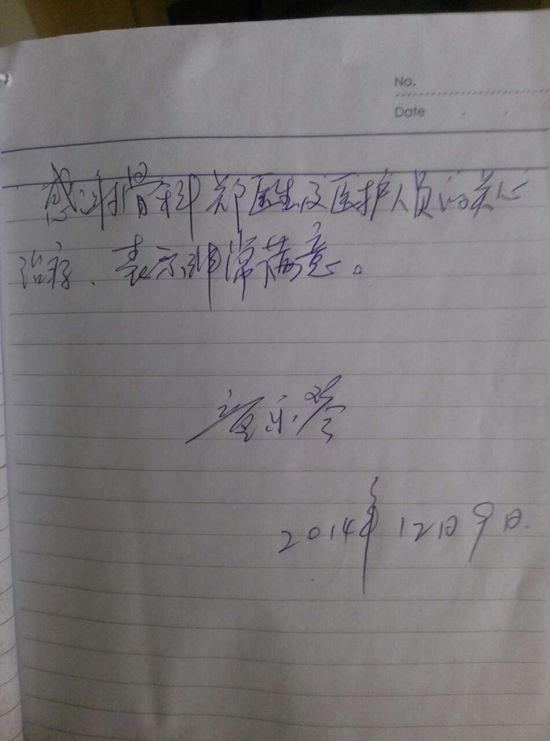 No.
Date
感谢骨科郑医生及医护人员的关心
治疗、表示非常满意。
2014年12月9日.